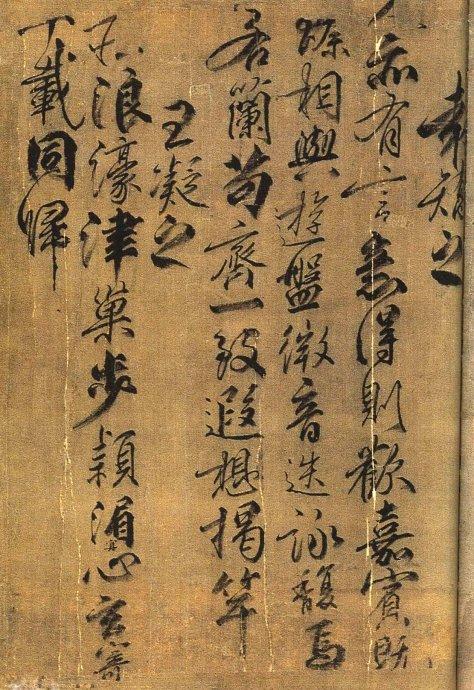 袁之
人亦有言意得則歡嘉賓既
臻相與遊盤微音迭詠馥焉
若蘭苟齊一致遐想揭竿
王凝之
莊浪濠津巢步潁湄冥心玄寄
千載同歸